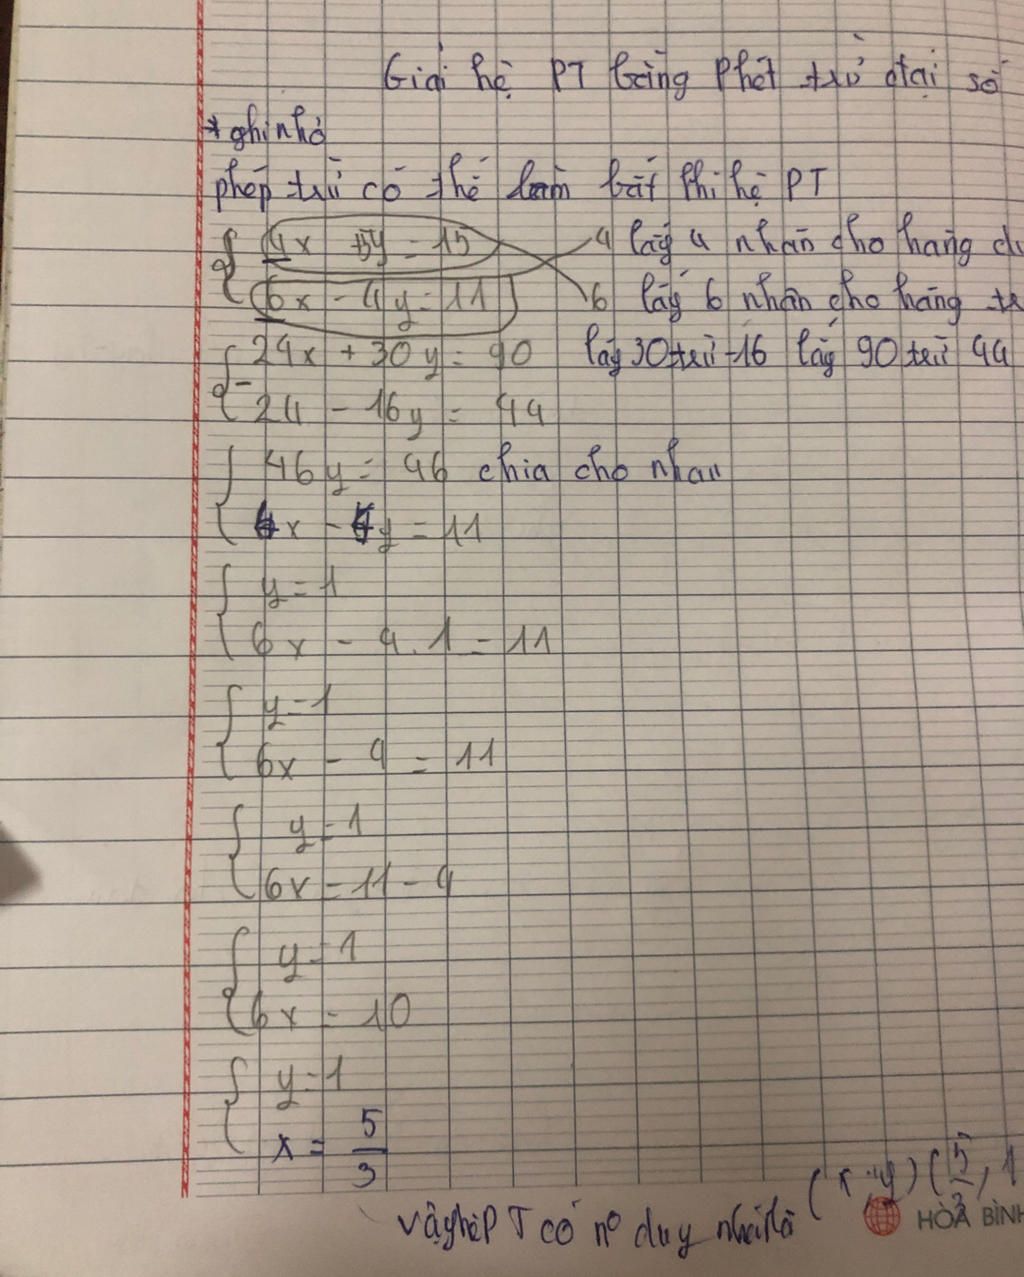 Giải hệ PT bằng Phét trừ đại số
* ghi nhớ
phép trừ có thể làm bất Phi hệ PT
4x +5y = 15 4 lấy 4 nhân cho hàng
6x - 4y = 11 6 lấy 6 nhân cho hàng
24x + 30y = 90 lấy 30 trừ -16 lấy 90 trừ 44
24 - 16y = 44
46y = 46 chia cho nhau
6x - 4y = 11
y = 1
6x - 4.1 = 11
y = 1
6x - 4 = 11
y = 1
6x = 11 - 4
y = 1
6x = 10
y = 1
x = 5/3
vậy hệ PT có nº duy nhất là (x;y) (5/3, 1
HÒA BÌNH